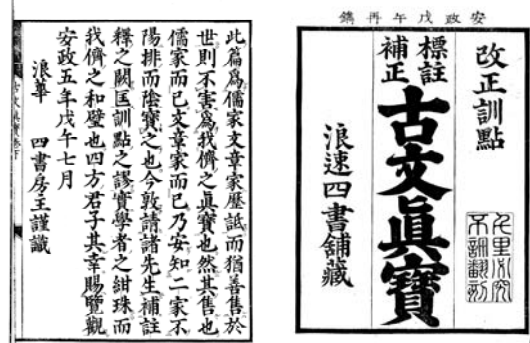 安政戊午再鐫
改正訓點
千里必究
不許翻刻
標註
補正
古文眞寶
浪速四書舖藏
此篇爲儒家文章家歷詆而猶善售於
世則不害爲我儕之眞寶也然其售也
儒家而已文章家而已乃安知二家不
陽排而陰寶之也今敦請諸先生補註
釋之闕匡訓點之謬實學者之紺珠而
我儕之和璧也四方君子其幸賜覽觀
安政五年戊午七月
浪華 四書房主謹識